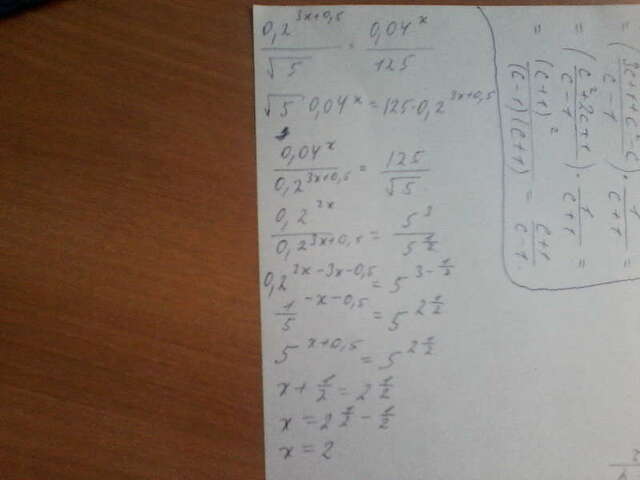 0,2^(3x+0,5) / √5 = 0,04^x / 125
√5 · 0,04^x = 125 · 0,2^(3x+0,5)
0,04^x / 0,2^(3x+0,5) = 125 / √5
0,2^(2x) / 0,2^(3x+0,5) = 5^3 / 5^(1/2)
0,2^(2x-3x-0,5) = 5^(3-1/2)
1/5^(-x-0,5) = 5^(2 1/2)
5^(x+0,5) = 5^(2 1/2)
x + 1/2 = 2 1/2
x = 2 1/2 - 1/2
x = 2
= (3c+1+c²-c / c-1) · 1 / c+1 =
= (c²+2c+1 / c-1) · 1 / c+1 =
= (c+1)² / (c-1)(c+1) = c+1 / c-1.